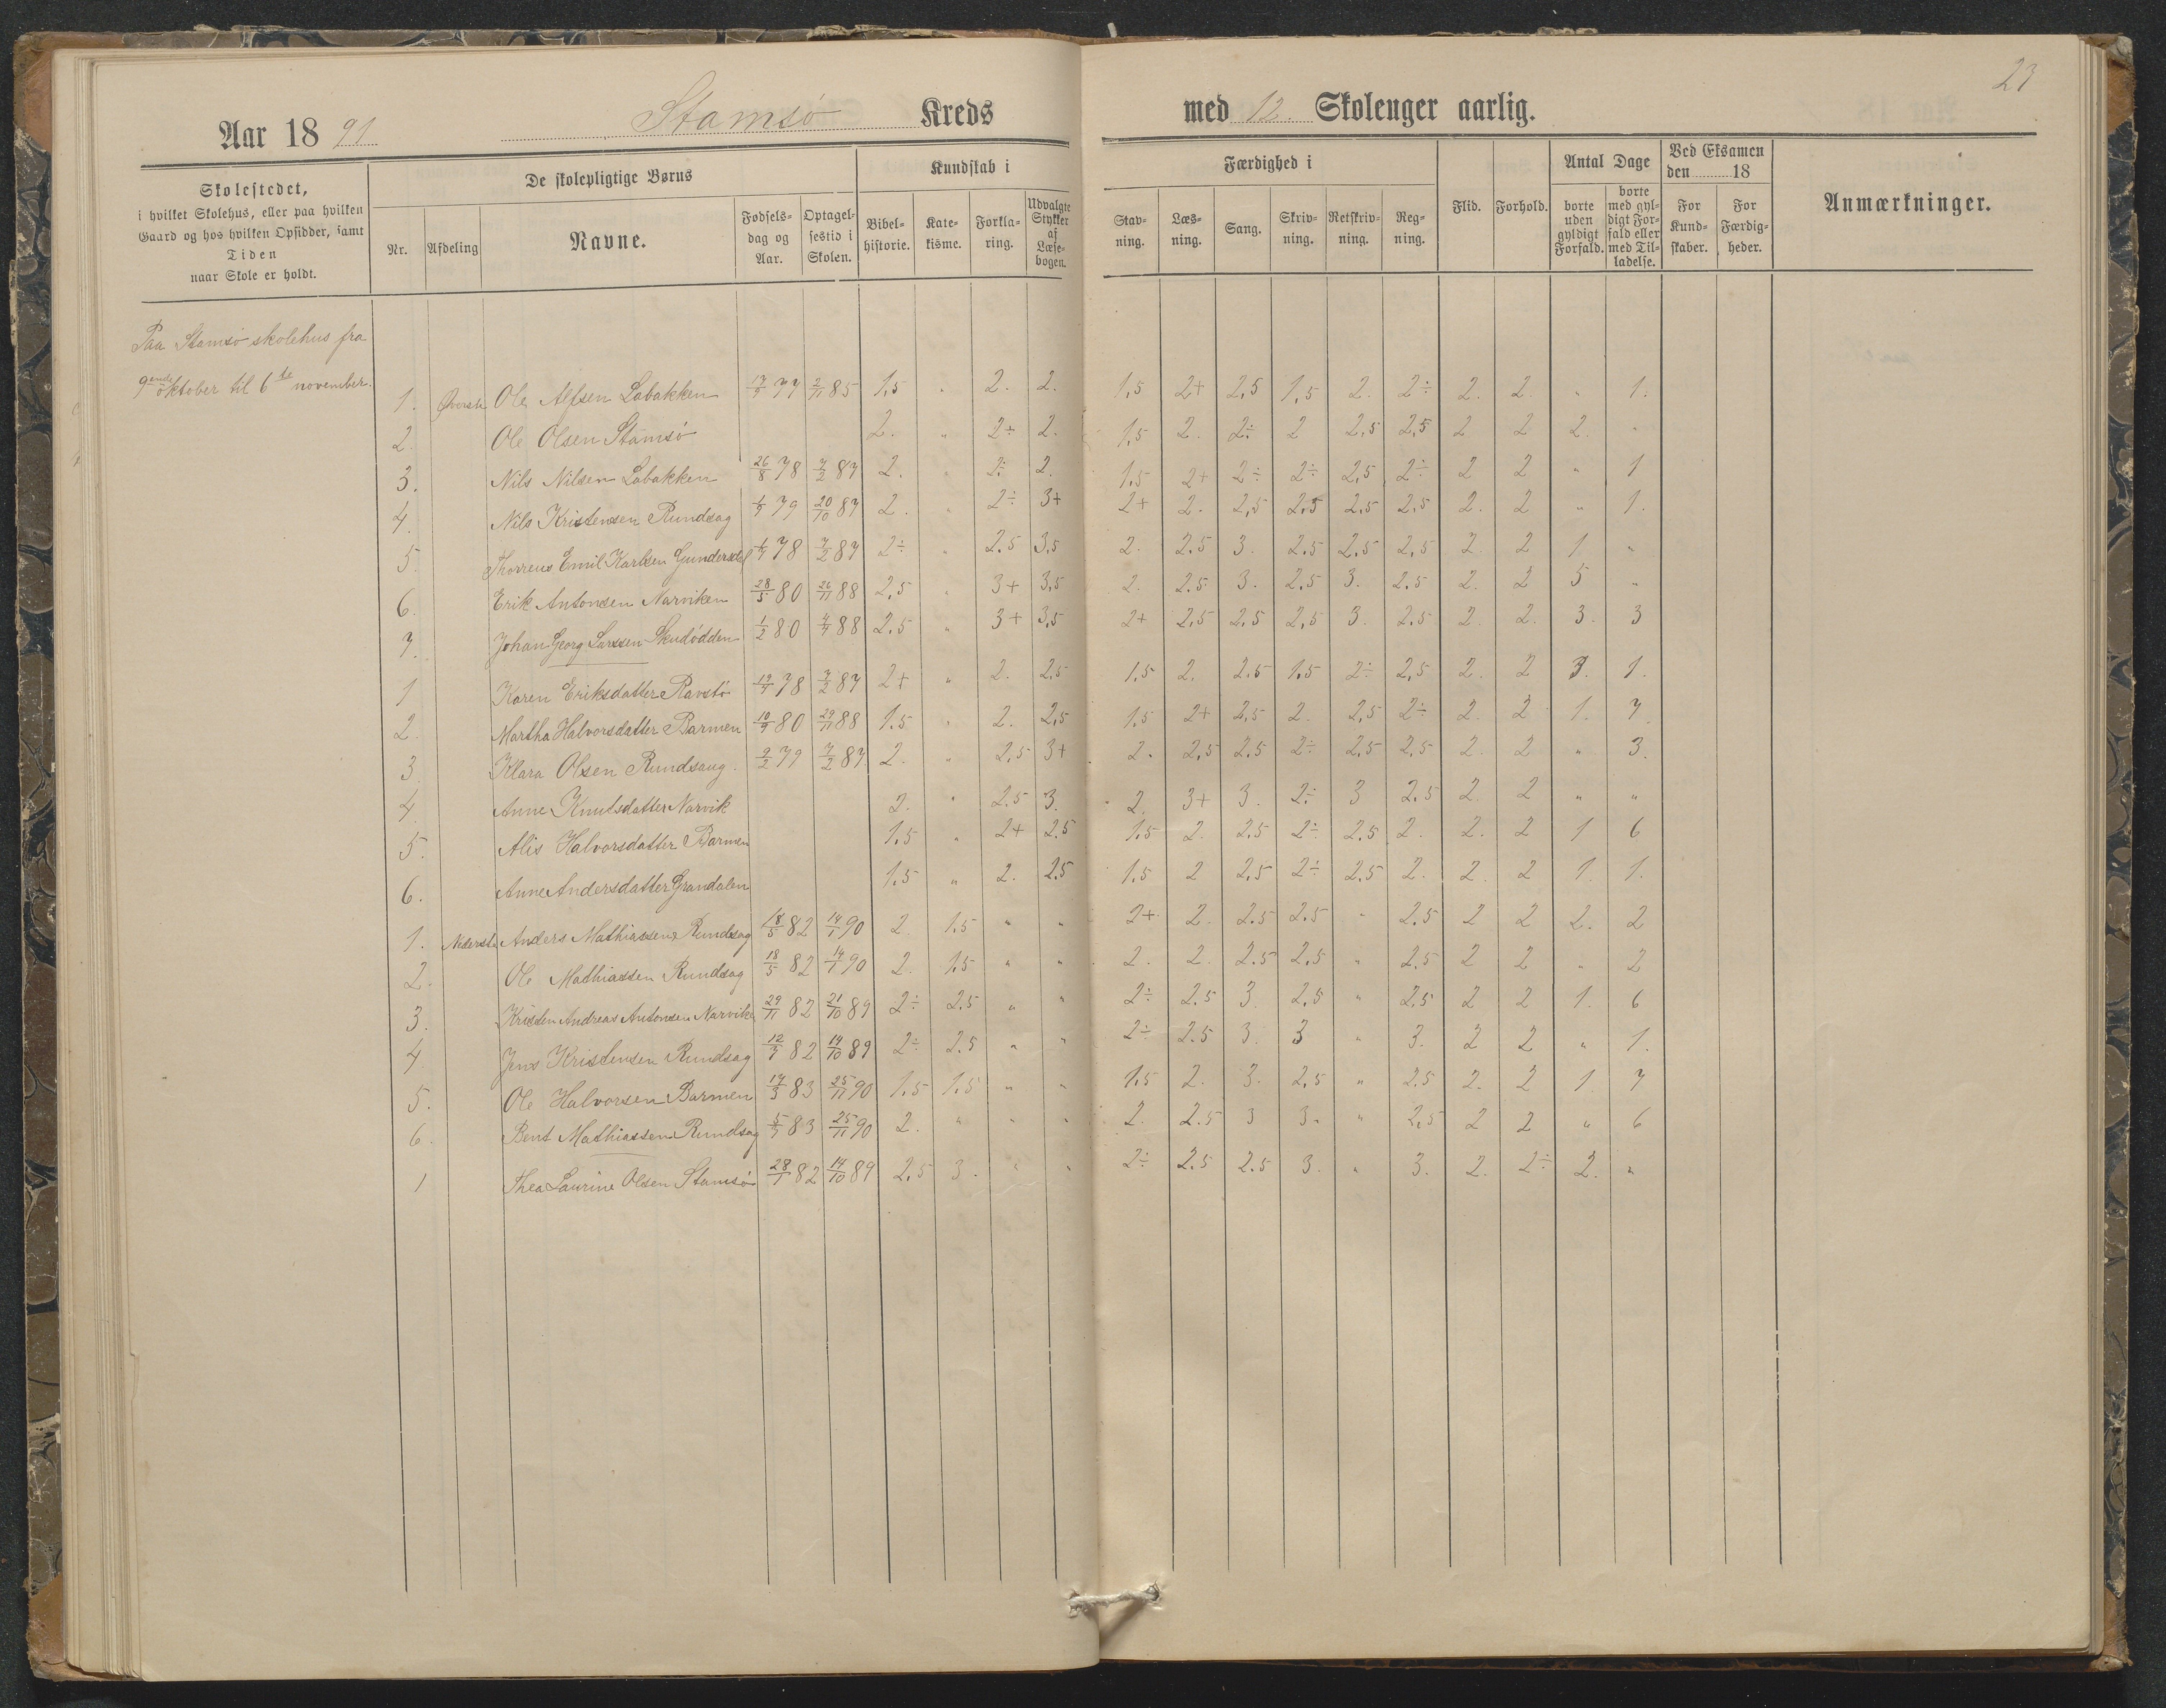 23
Aar 18 91 Stamsø Kreds med 12. Skoleuger aarlig.
Skolestedet, i hvilket Skolehus, eller paa hvilken Gaard og hos hvilken Opsidder, samt Tiden naar Skole er holdt.
De skolepligtige Børns
Nr. Afdeling Navne. Fødselsdag og Aar. Optagelsestid i Skolen.
Kundskab i
Bibelhistorie. Katekisme. Forklaring. Udvalgte Stykker af Læsebogen.
Færdighed i
Stavning. Læsning. Sang. Skrivning. Retskrivning. Regning.
Flid. Forhold.
Antal Dage
borte uden gyldigt Forfald. borte med gyldigt Forfald eller med Tilladelse.
Ved Eksamen den 18
For Kundskaber. For Færdigheder.
Anmærkninger.
Paa Stamsø skolehus fra
9ende oktober til 6te november.
1. Øverste Ole Alfsen Labakken 77 2/11 85 1,5 " 2. 2. 1,5 2+ 2,5 1,5 2. 2÷ 2. 2. " 1.
2. Ole Olsen Stamsø 2. " 2÷ 2. 1,5 2. 2÷ 2 2,5 2,5 2 2 2. "
3. Nils Nilsen Labakken 26/8 78 7/2 87 2. " 2÷ 2. 1,5 2+ 2÷ 2÷ 2,5 2÷ 2 2 " 1
4. Nils Kristensen Rundsag 79 20/10 87 2. " 2÷ 3+ 2+ 2. 2,5 2,5 2,5 2,5 2. 2 " 1.
5. Emil Karlsen 78 7/2 87 2÷ " 2.5 3,5 2. 2.5 3. 2.5 2.5 2,5 2. 2 1 "
6. Erik Antonsen Narviken 28/5 80 26/11 88 2,5 " 3+ 3,5 2. 2.5 3. 2.5 3. 2.5 2. 2 5 "
7. Johan Georg Larssen Skudødden 1/2 80 88 2.5 " 3+ 3,5 2+ 2,5 2.5 2,5 3. 2.5 2. 2. 3. 3
1 Karen Eriksdatter Ravstø 78 7/2 87 2+ " 2. 2,5 1.5 2. 2.5 1.5 2÷ 2,5 2. 2 3. 1.
2. Martha Halvorsdatter Barmen 80 29/11 88 1.5 " 2. 2,5 1.5 2+ 2,5 2. 2,5 2÷ 2. 2 1. 7.
3. Klara Olsen Rundsaug. 2/2 79 7/2 87. 2. " 2,5 3+ 2. 2,5 2.5 2÷ 2,5 2,5 2. 2 " 3.
4. Anne Knutsdatter Narvik 2. " 2.5 3. 2. 3+ 3. 2÷ 3 2.5 2. 2 " "
5. Alis Halvorsdatter Barmen 1.5 " 2+ 2.5 1.5 2. 2.5 2÷ 2.5 2. 2. 2 1 6
6. Anne Andersdatter Grandalen 1.5 " 2. 2.5 1.5 2 2,5 2÷ 2.5 2. 2. 2 1. 1.
1. Nederste Anders Mathiassen Rundsag 18/5 82 14/1 90 2. 1.5 " " 2+ 2. 2.5 2.5 " 2.5 2 2 2. 2
2. Ole Mathiassen Rundsag 18/5 82 14/1 90 2. 1.5 " " 2. 2. 2.5 2.5 " 2.5 2 2 " 2
3. Kristen Andreas Antonsen Narviken 29/11 82 21/10 89 2÷ 2.5 " " 2÷ 2.5 3. 2.5 " 2.5 2 2 1. 6
4. Jens Kristensen Rundsag 82 14/10 89 2÷ 2.5 " " 2÷ 2.5 3. 3 " 3. 2 2 " 1.
5. Ole Halvorsen Barmen 83 25/11 90 1.5 1.5 " " 1.5 2. 3. 2.5 " 2.5 2. 2 1. 7
6. Bent Mathiassen Rundsag 83 25/11 90 2. " " " 2. 2.5 3 3. " 2,5 2 2 " 6
1 Thea Laurine Olsen Stamsø 28/1 82 14/10 89 2.5 3. " " 2÷ 2.5 2.5 3. " 3. 2. 2÷ 2. "